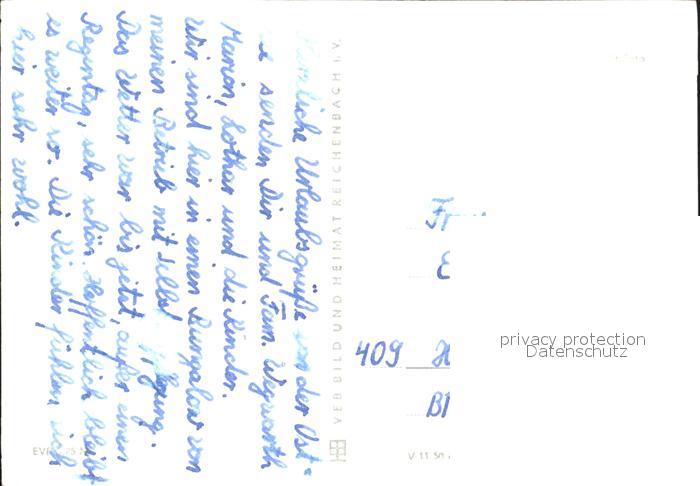 Herzliche Urlaubsgrüße von der Ost=
see senden Dir und Fam. Wigwarth
Marion, Lothar und die Kinder.
Wir sind hier in einen Bungalow von
meinen Betrieb mit Selbst
Das Wetter war bis jetzt, außer einen
Regentag, sehr schön. Hoffentlich bleibt
es weiter so. Die Kinder fühlen sich
hier sehr wohl.
VEB BILD UND HEIMAT REICHENBACH I. V.
Fr
E
409 H
Bl
privacy protection
Datenschutz
V 11 50
EVP